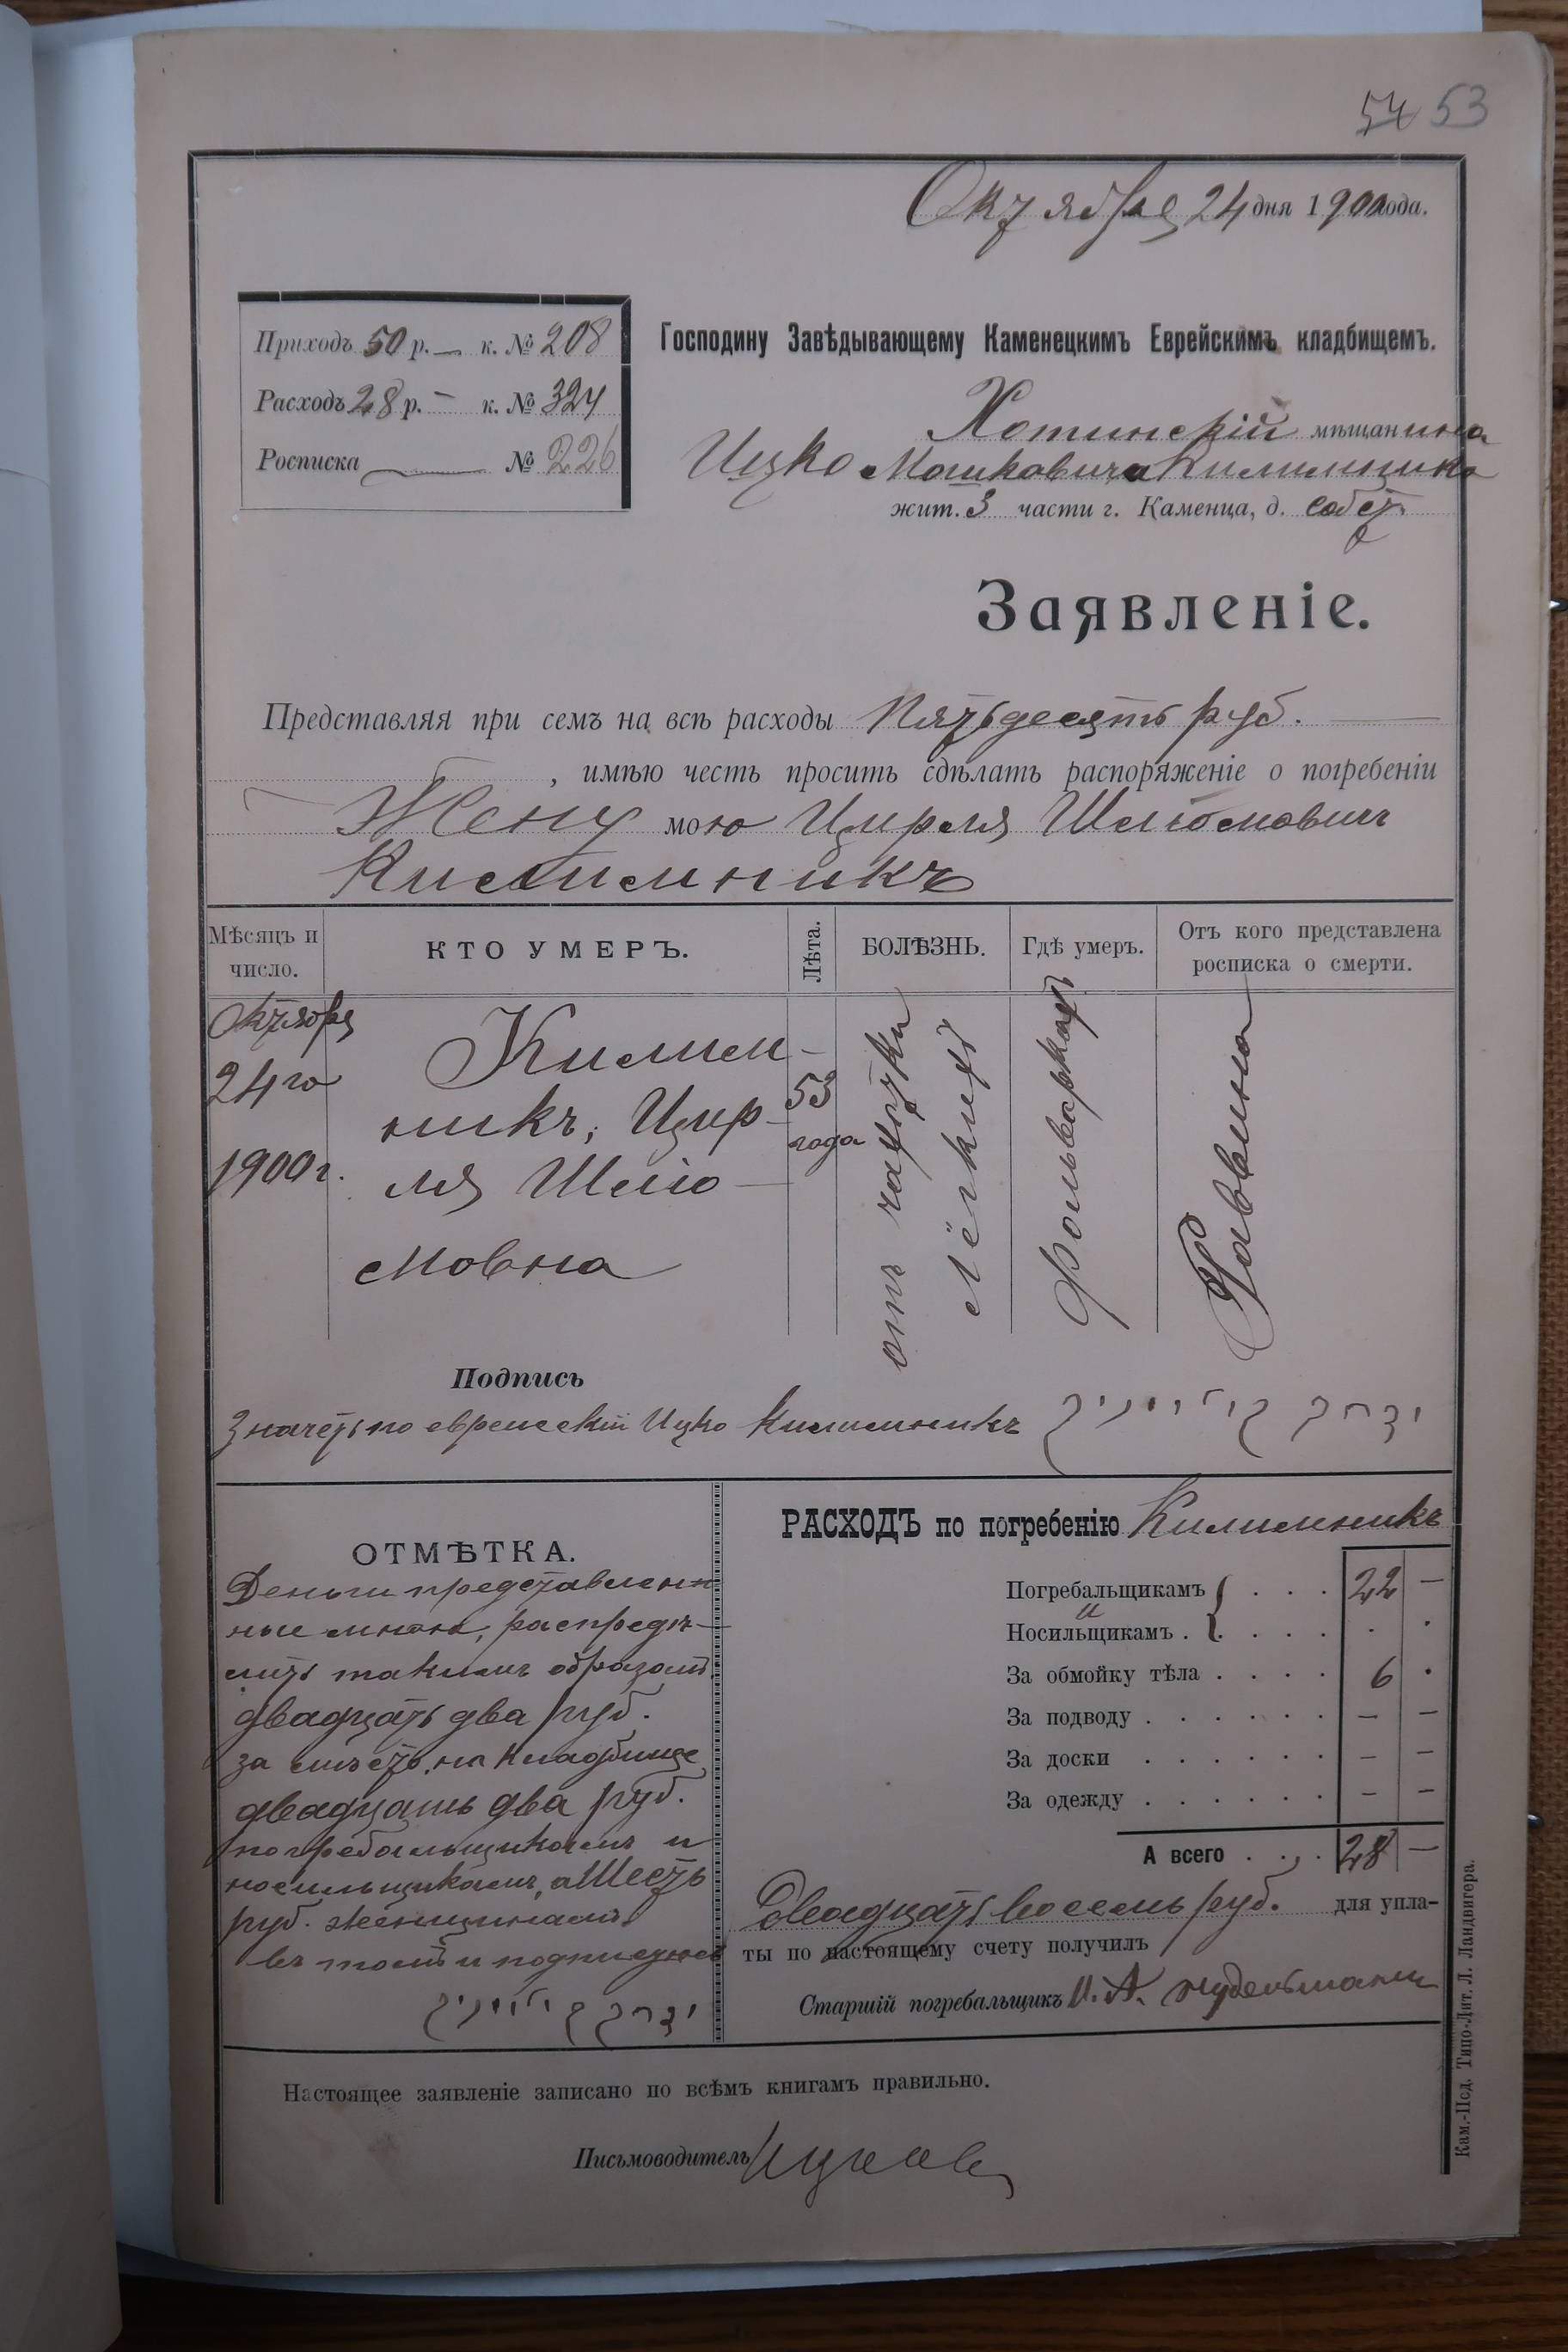 54 53
Октября 24 дня 1900 года.
Приходъ 50 р. — к. № 208
Расходъ 28 р. — к. № 324
Росписка № 226
Господину Завѣдывающему Каменецкимъ Еврейскимъ кладбищемъ.
Хотинскій мѣщанина
Ицко Мошковича Килимника
жит. 3 части г. Каменца, д. собст.
Заявленіе.
Представляя при семъ на всѣ расходы Пятьдесять руб.
, имѣю честь просить сдѣлать распоряженіе о погребеніи
Жену мою Цирля Шліомович
Килимникъ
Мѣсяцъ и число.
КТО УМЕРЪ.
Лѣта.
БОЛѢЗНЬ.
Гдѣ умеръ.
Отъ кого представлена росписка о смерти.
Октября
24го
1900 г.
Килим-
никъ, Цир-
ля Шліо-
мовна
53
года
отъ чахотки
лёгкихъ
Фольваркахъ
Раввина
Подпись
Значеть по еврейскій Ицко Килимникъ
ОТМѢТКА.
Деньги представлен-
ные мною, распредѣ-
лить такимъ образомъ
двадцать два руб.
за мѣсто на кладбище
двадцать два руб.
погребальщикамъ и
носильщикамъ, а Шесть
руб. женщинамъ
въ томъ и подписуюсь
РАСХОДЪ по погребенію Килимникъ
Погребальщикамъ . . . 22 —
и
Носильщикамъ . . . . .
За обмойку тѣла . . . . 6 .
За подводу . . . . . . — —
За доски . . . . . . — —
За одежду . . . . . . — —
А всего . . . 28 —
Двадцать восемь руб. для упла-
ты по настоящему счету получилъ
Старшій погребальщикъ И. А. Нудельманъ
Настоящее заявленіе записано по всѣмъ книгамъ правильно.
Письмоводитель
Кам.-Под. Типо-Лит. Л. Ландвигера.